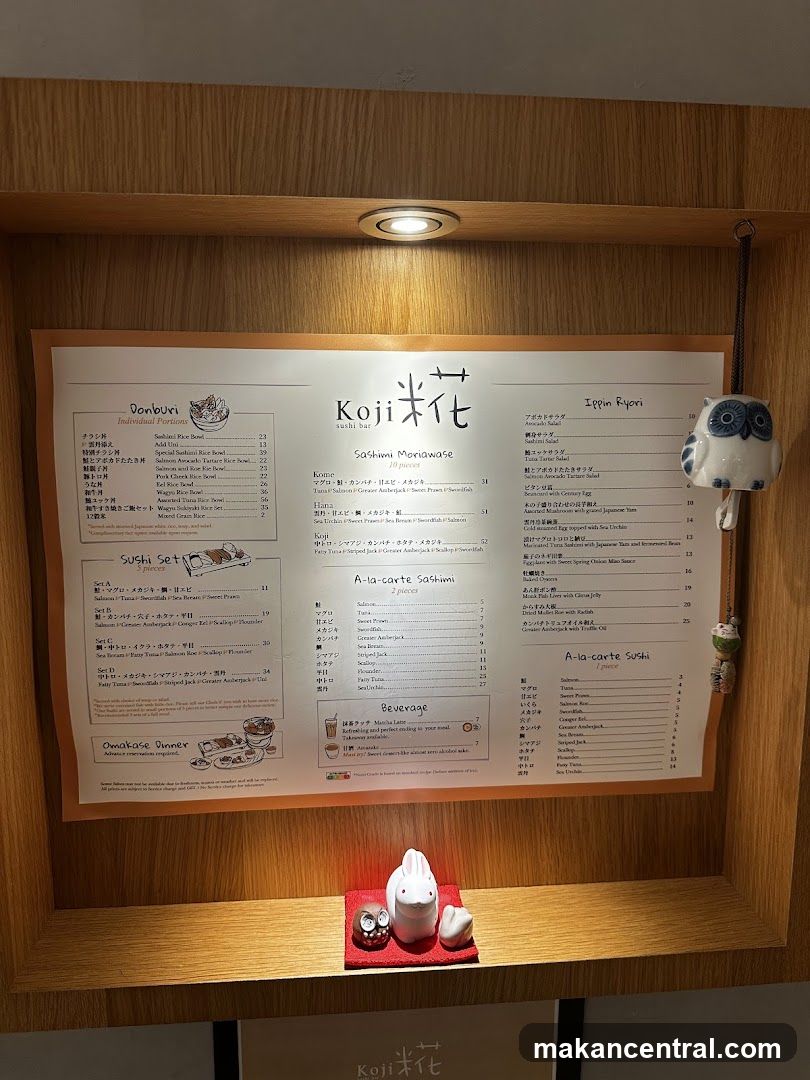 Donburi
Individual Portions
チラシ丼 Sashimi Rice Bowl 23
雲丹添え Add Uni 13
特別チラシ丼 Special Sashimi Rice Bowl 39
鮭とアボカドたたき丼 Salmon Avocado Tartare Rice Bowl 22
鮭親子丼 Salmon and Roe Rice Bowl 23
豚トロ丼 Pork Cheek Rice Bowl 22
うな丼 Eel Rice Bowl 26
和牛丼 Wagyu Rice Bowl 36
鮪ユッケ丼 Assorted Tuna Rice Bowl 56
和牛すき焼きご飯セット Wagyu Sukiyaki Rice Set 35
12穀米 Mixed Grain Rice 2
*Served with steamed Japanese white rice, soup, and salad.
*Complimentary rice upsize available upon request.
Sushi Set
5 pieces
Set A
鮭・マグロ・メカジキ・鯛・甘エビ 11
Salmon Tuna Swordfish Sea Bream Sweet Prawn
Set B
鮭・カンパチ・穴子・ホタテ・平目 19
Salmon Greater Amberjack Conger Eel Scallop Flounder
Set C
鯛・中トロ・イクラ・ホタテ・平目 30
Sea Bream Fatty Tuna Salmon Roe Scallop Flounder
Set D
中トロ・メカジキ・シマアジ・カンパチ・雲丹 34
Fatty Tuna Swordfish Striped Jack Greater Amberjack Uni
*Served with choice of soup or salad.
Omakase Dinner
Advance reservation required.
Some fishes may not be available due to freshness, season or weather and will be replaced.
All prices are subject to Service charge and GST. No Service charge for takeaway.
Koji 糀
sushi bar
Sashimi Moriawase
10 pieces
Kome
マグロ・鮭・カンパチ・甘エビ・メカジキ 31
Tuna Salmon Greater Amberjack Sweet Prawn Swordfish
Hana
雲丹・甘エビ・鯛・メカジキ・鮭 51
Sea Urchin Sweet Prawn Sea Bream Swordfish Salmon
Koji
中トロ・シマアジ・カンパチ・ホタテ・メカジキ 52
Fatty Tuna Striped Jack Greater Amberjack Scallop Swordfish
A-la-carte Sashimi
2 pieces
鮭 Salmon 5
マグロ Tuna 7
甘エビ Sweet Prawn 7
メカジキ Swordfish 9
カンパチ Greater Amberjack 9
鯛 Sea Bream 9
シマアジ Striped Jack 11
ホタテ Scallop 11
平目 Flounder 15
中トロ Fatty Tuna 25
雲丹 Sea Urchin 27
Beverage
抹茶ラッテ Matcha Latte 7
Refreshing and perfect ending to your meal.
Takeaway available.
甘酒 Amazake 7
Must try! Sweet dessert-like almost zero alcohol sake.
Ippin Ryori
アボカドサラダ 10
Avocado Salad
刺身サラダ
Sashimi Salad
鮪ユッケサラダ
Tuna Tartar Salad
鮭とアボカドたたきサラダ
Salmon Avocado Tartare Salad
ピタン豆腐
Beancurd with Century Egg
木の子盛り合わせの長芋和え 10
Assorted Mushroom with grated Japanese Yam
雲丹冷茶碗蒸し 14
Cold steamed Egg topped with Sea Urchin
漬けマグロトロロと納豆 13
Marinated Tuna Sashimi with Japanese Yam and fermented Bean
茄子のネギ田楽 13
Eggplant with Sweet Spring Onion Miso Sauce
牡蠣焼き 16
Baked Oysters
あん肝ポン酢 19
Monk Fish Liver with Citrus Jelly
からすみ大根 20
Dried Mullet Roe with Radish
カンパチトリュフオイル和え 25
Greater Amberjack with Truffle Oil
A-la-carte Sushi
1 piece
鮭 Salmon 3
マグロ Tuna 4
甘エビ Sweet Prawn 4
いくら Salmon Roe 5
メカジキ Swordfish 5
穴子 Conger Eel 5
カンパチ Greater Amberjack 5
鯛 Sea Bream 5
シマアジ Striped Jack 6
ホタテ Scallop 6
平目 Flounder 8
中トロ Fatty Tuna 13
雲丹 Sea Urchin 14
Koji 糀
makancentral.com